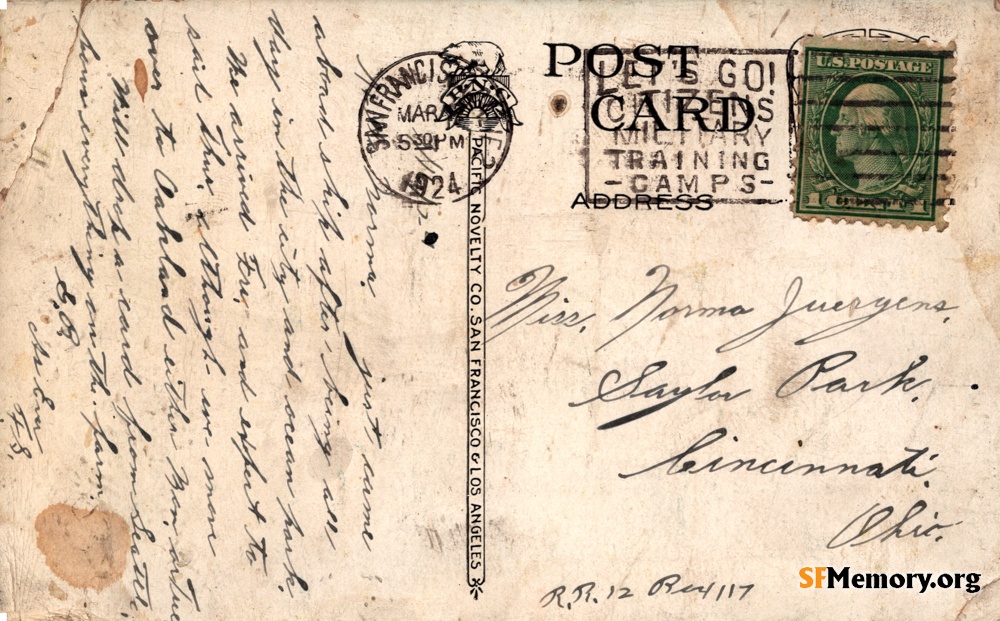 Norma. just came
aboard ship after being all
day in the city and ocean park
We arrived Fri. and expect to
sail Thur. although we move
over to Oakland either Mon. or Tue
Will drop a card from Seattle
how is everything on the farm.
As Ever
F.S.
SAN FRANCISCO
MAR
5 30 PM
1924
PACIFIC NOVELTY CO. SAN FRANCISCO & LOS ANGELES
POST
CARD
ADDRESS
LET'S GO!
CITIZENS
MILITARY
TRAINING
-CAMPS-
U.S. POSTAGE
1 1
Miss. Norma Juergens.
Saylor Park.
Cincinnati.
Ohio.
R.R. 12 Box 117
SFMemory.org